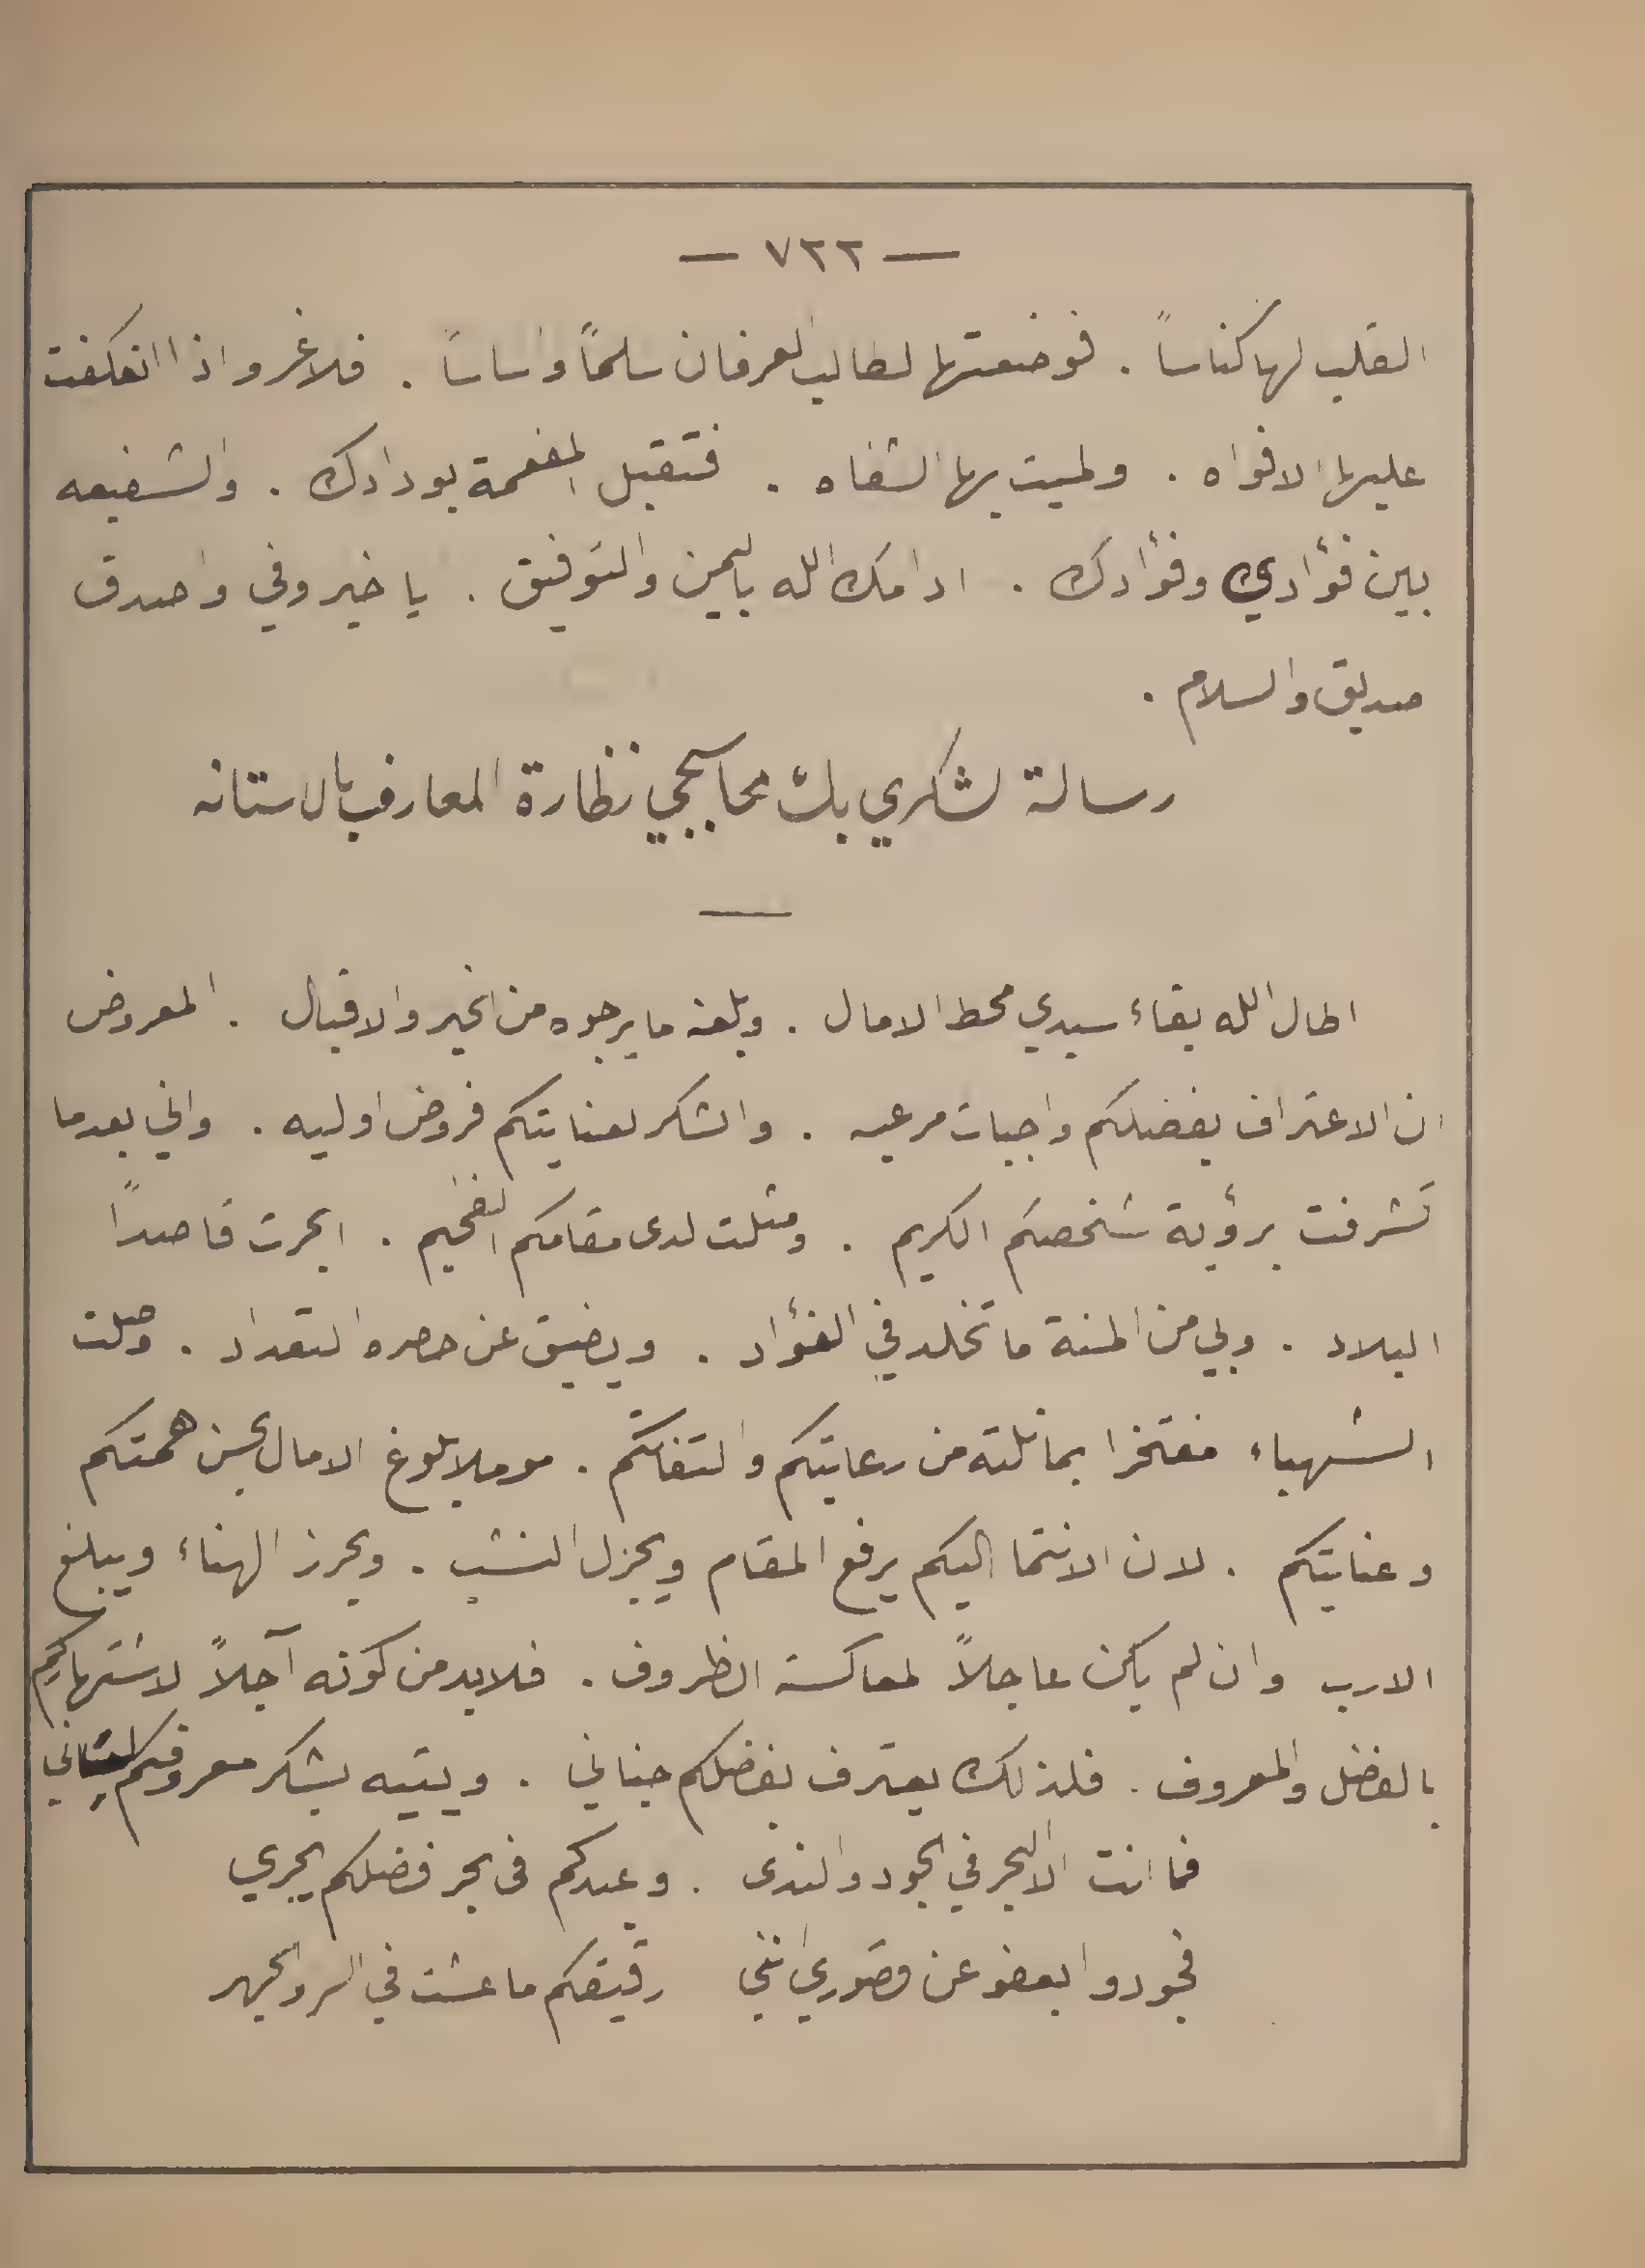 — ٧٢٢ —
القلب لها كناساً . فوضعتها لطالب العرفان سلماً واساساً . فلا غرو اذا انعكفت
عليها الافواه . ولميت بها الشفاه . فتقبل المفعمة بودادك . والشفيعه
بين فؤادي وفؤادك . ادامك الله باليمن والتوفيق . يا خير وفي واصدق
صديق والسلام .
رسالة لشكري بك محاسبجي نظارة المعارف بالاستانه
اطال الله بقاء سيدي محط الامال . وبلغه ما يرجوه من الخير والاقبال . المعروض
ان الاعتراف بفضلكم واجبات مرعيه . والشكر لعنايتكم فروض اوليه . واني بعد ما
تشرفت برؤية شخصكم الكريم . ومثلت لدى مقامكم الفخيم . ابحرت قاصداً
البلاد . وبي من المنة ما تخلد في الفؤاد . ويضيق عن حصره التعداد . وصلت
الشهباء مفتخرا بما نلته من رعايتكم والتفاتكم . موملا بلوغ الامال بحسن همتكم
وعنايتكم . لان الانتما اليكم يرفع المقام ويجزل النشب . ويحرز الهناء ويبلغ
الارب وان لم يكن عاجلاً لمعاكسة الظروف . فلابد من كونه آجلاً لاشتهاركم
بالفضل والمعروف . فلذلك يعترف بفضلكم جناني . ويتيه بشكر معروفكم لساني
فما انت الا البحر في الجود والندى . وعبدكم فى بحر فضلكم يجري
فجودوا بعفو عن قصوري انني رقيقكم ما عشت في السر والجهر